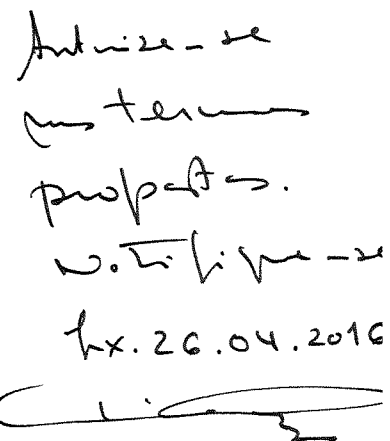 Autorize-se
nos termos
propostos.
Notifique-se
Lx. 26.04.2016